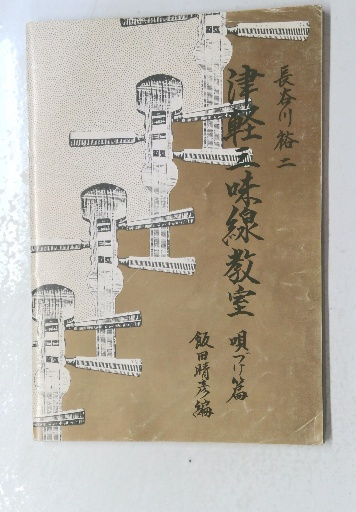 長谷川裕二
津軽三味線教室
唄つけ篇
飯田晴彦編